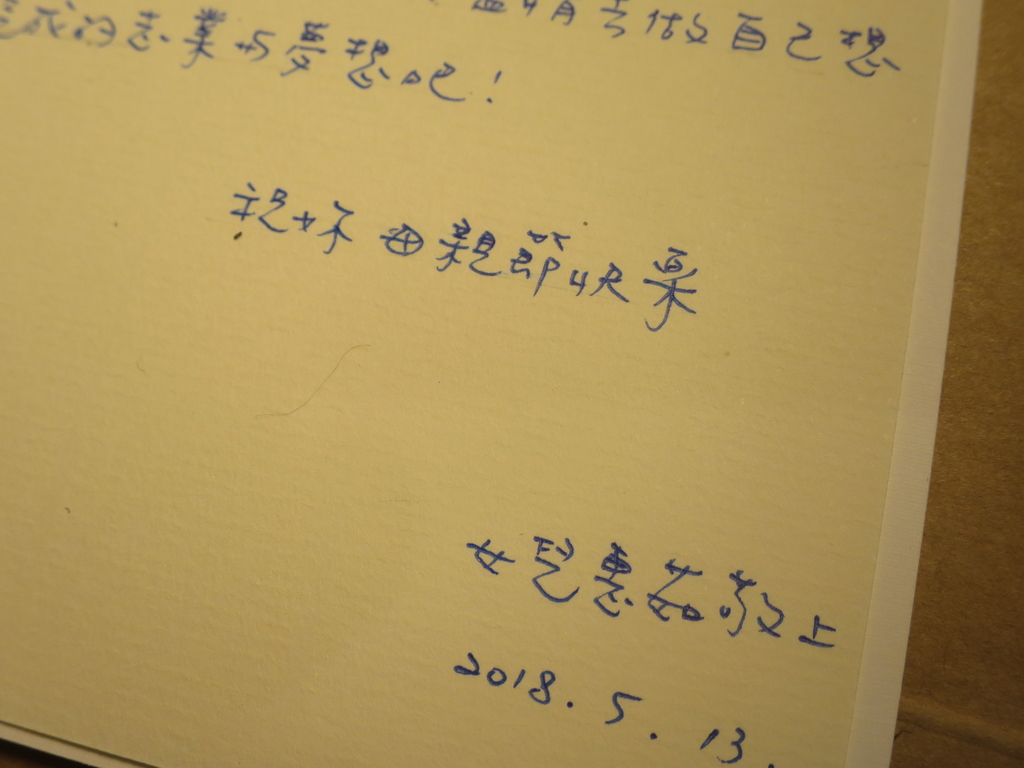 盡情去做自己想
完成的志業與夢想吧!
祝妳母親節快樂
女兒惠茹敬上
2018.5.13.